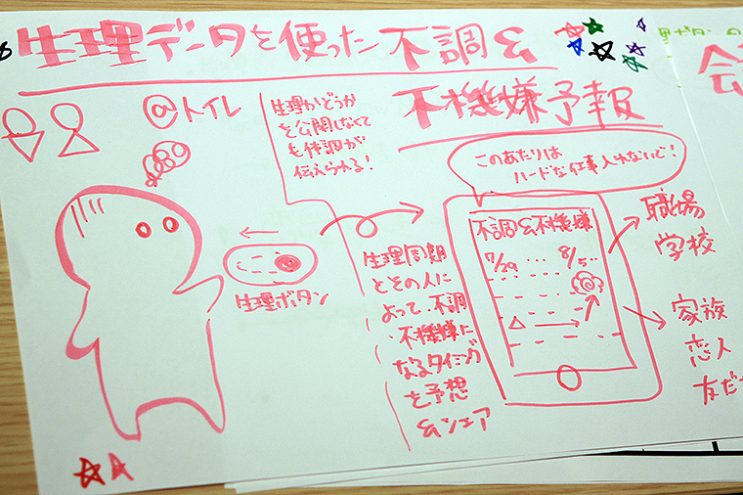 生理データを使った不調&
不機嫌予報
@トイレ
生理かどうか
を公開しなくて
も体調が
伝えられる!
このあたりは
ハードな仕事入れないで!
生理ボタン
生理周期
とその人に
よって、不調
・不機嫌に
なるタイミング
を予想
&シェア
不調&不機嫌
7/29 ... 8/5...
職場
学校
家族
恋人
友だ
会